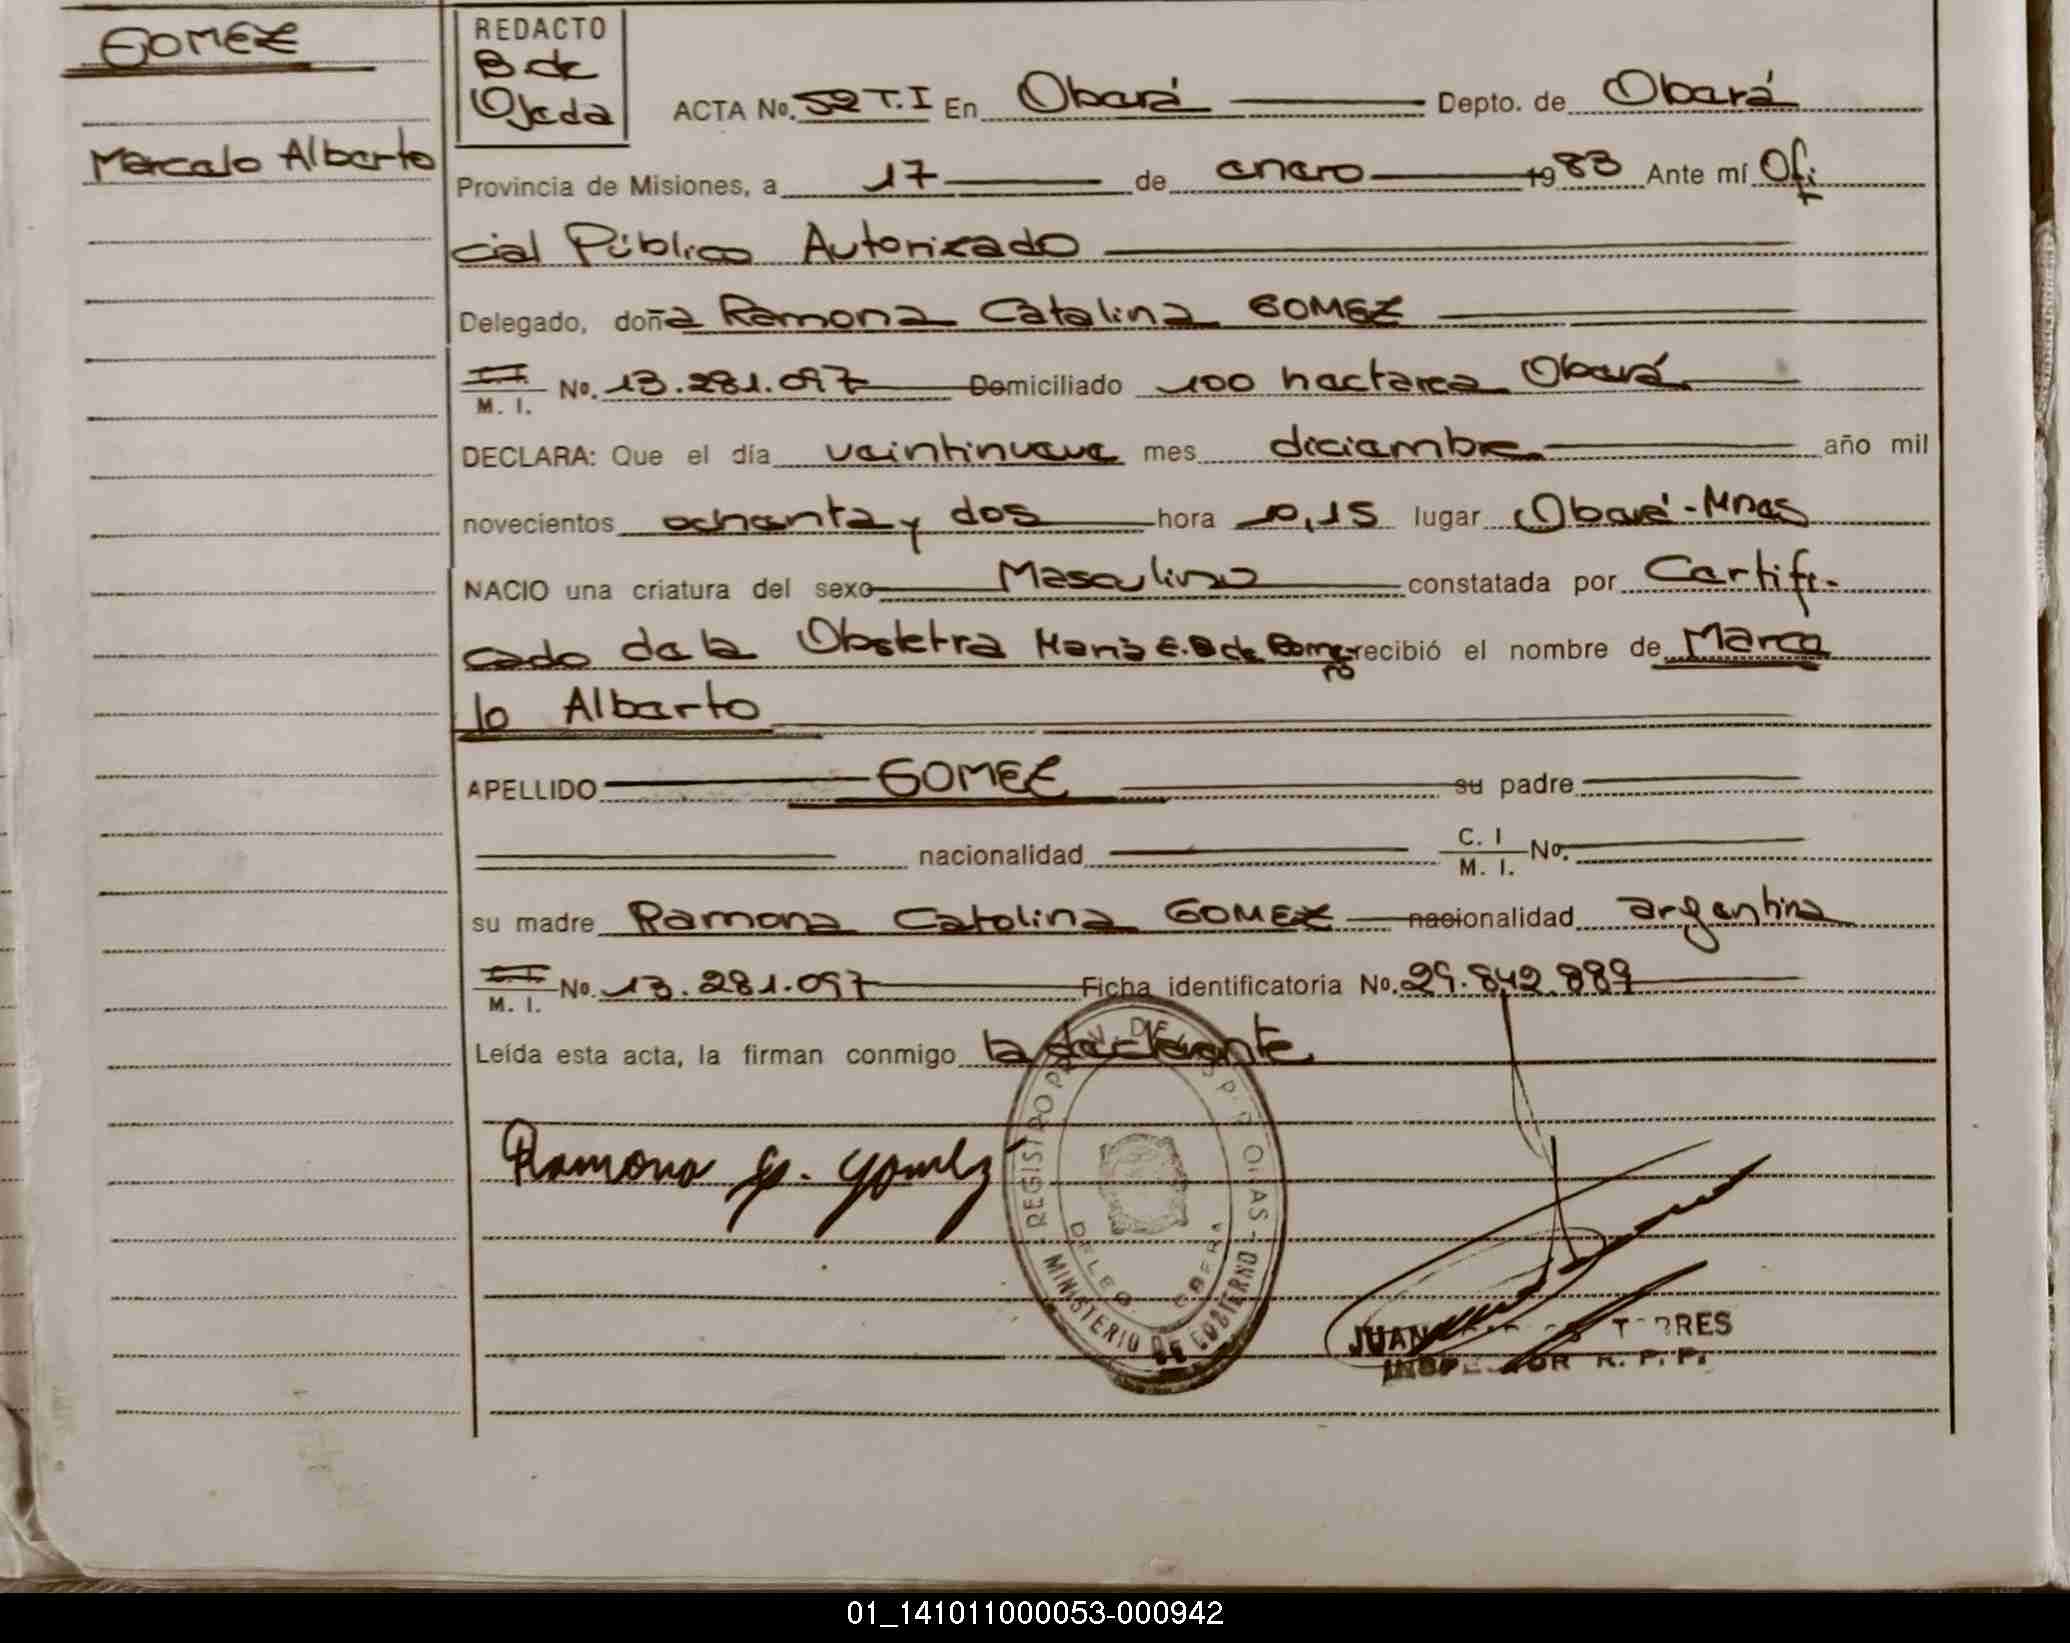 GOMEZ
Marcelo Alberto
REDACTO
B. de
Ojeda
ACTA No. 52 T.I En Oberá Depto. de Oberá
Provincia de Misiones, a 17 de enero 1983 Ante mí Ofi
cial Público Autorizado
Delegado, doña Ramona Catalina GOMEZ
C. I. M. I. No. 13.281.097 Domiciliado 100 hactarea Oberá
DECLARA: Que el día veintinueve mes diciembre año mil
novecientos ochenta y dos hora 10,15 lugar Oberá-Mnes
NACIO una criatura del sexo Masculino constatada por Certifi-
cado de la Obstetra María E. B de Romero recibió el nombre de Marce
lo Alberto
APELLIDO GOMEZ su padre
nacionalidad C. I M. I. No.
su madre Ramona Catalina GOMEZ nacionalidad argentina
C. I. M. I. No. 13.281.097 Ficha identificatoria No. 29.842.889
Leída esta acta, la firman conmigo la declarante
Ramona C. Gomez
REGISTRO PROV. DE LAS PERSONAS - MINISTERIO DE GOBIERNO
DELEG. OBERA
JUAN TORRES
INSPECTOR R. P. P.
01_141011000053-000942